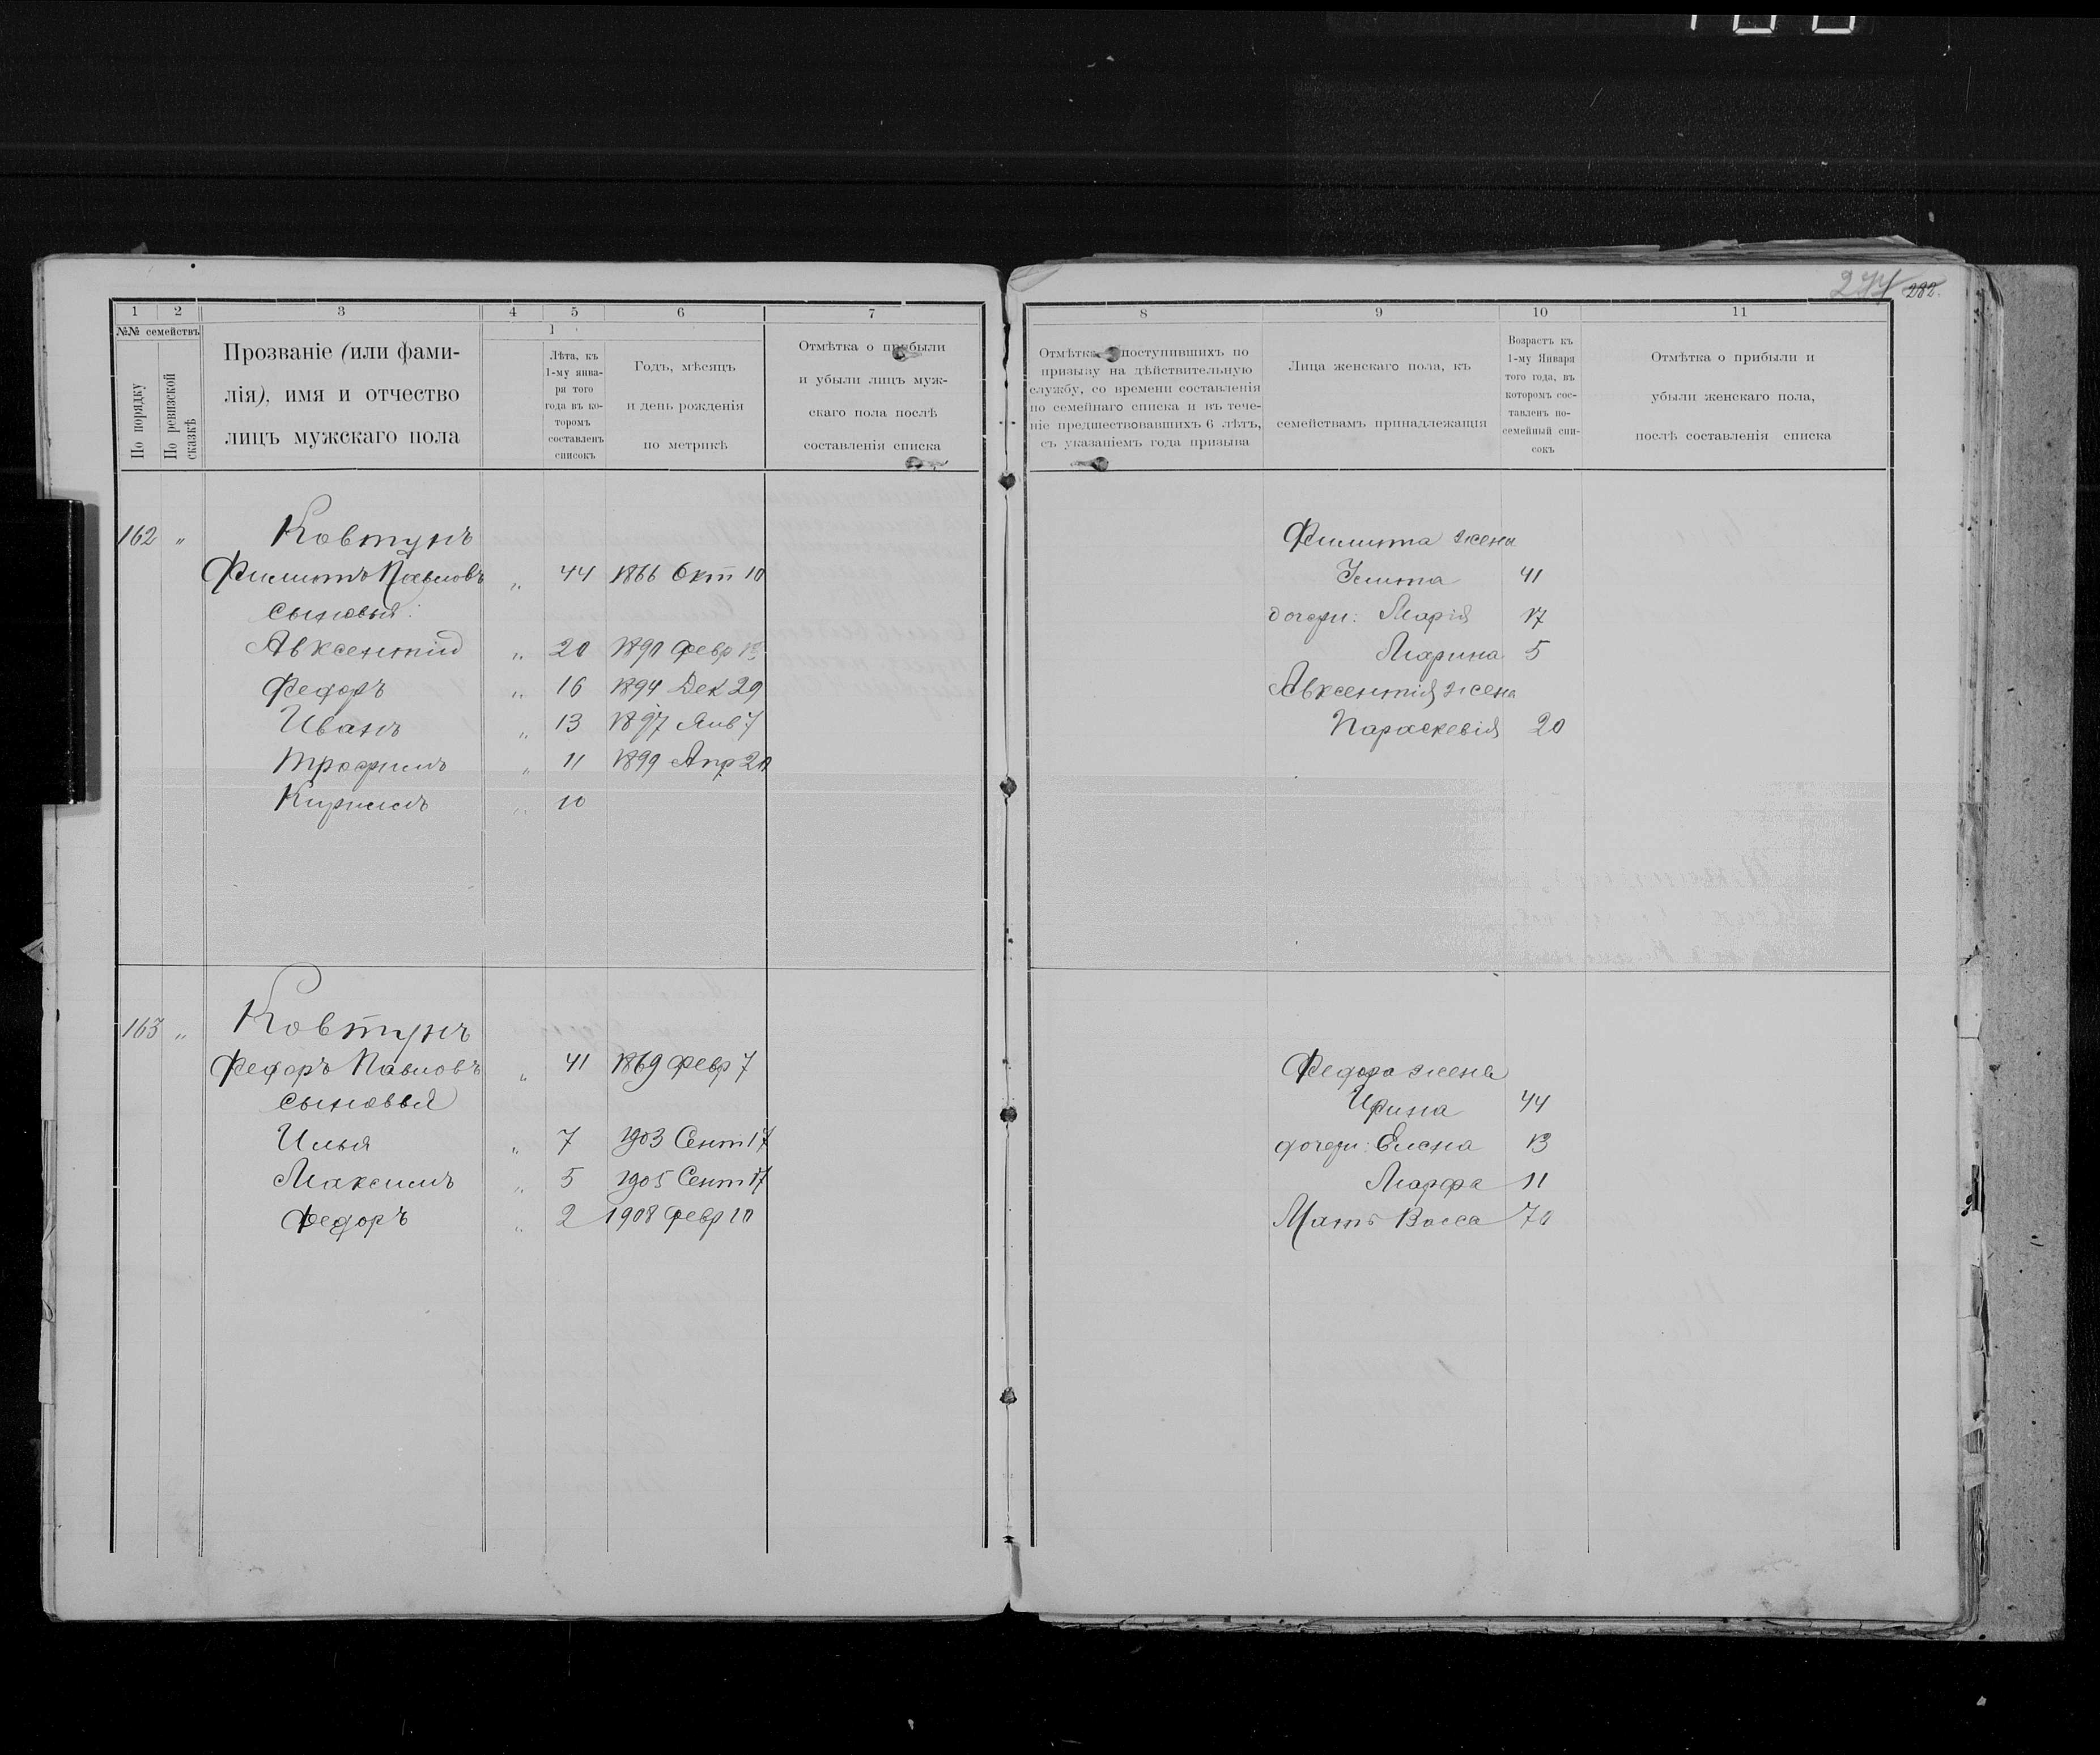 277 282.
1 2 3 4 5 6 7
№№ семействъ
По порядку
По ревизской сказкѣ
Прозваніе (или фами-
лія), имя и отчество
лицъ мужскаго пола
1
Лѣта, къ
1-му янва-
ря того
года въ ко-
торомъ
составленъ
списокъ
Годъ, мѣсяцъ
и день рожденія
по метрикѣ
Отмѣтка о прибыли
и убыли лицъ муж-
скаго пола послѣ
составленія списка
162 " Ковтунъ
Филиппъ Павловъ " 44 1866 Окт 10
сыновья:
Авксентій " 20 1890 Февр
Федоръ " 16 1894 Дек 29
Иванъ " 13 1897 Янв 7
Трофимъ " 11 1899 Апр 20
Кириллъ " 10
163 " Ковтунъ
Федоръ Павловъ " 41 1869 Февр 7
сыновья
Илья " 7 1903 Сент 17
Максимъ " 5 1905 Сент 17
Федоръ " 2 1908 Февр 10
8 9 10 11
Отмѣтка поступившихъ по
призыву на дѣйствительную
службу, со времени составленія
по семейнаго списка и въ тече-
ніе предшествовавшихъ 6 лѣтъ,
съ указаніемъ года призыва
Лица женскаго пола, къ
семействамъ принадлежащія
Возрастъ къ
1-му Января
того года, въ
которомъ сос-
тавленъ по-
семейный спи-
сокъ
Отмѣтка о прибыли и
убыли женскаго пола,
послѣ составленія списка
Филиппа жена
41
дочери: Марія 17
Марина 5
Авксентія жена
Параскевія 20
Федора жена
Ирина 44
дочери: Елена 13
Марфа 11
Мать Васса 70